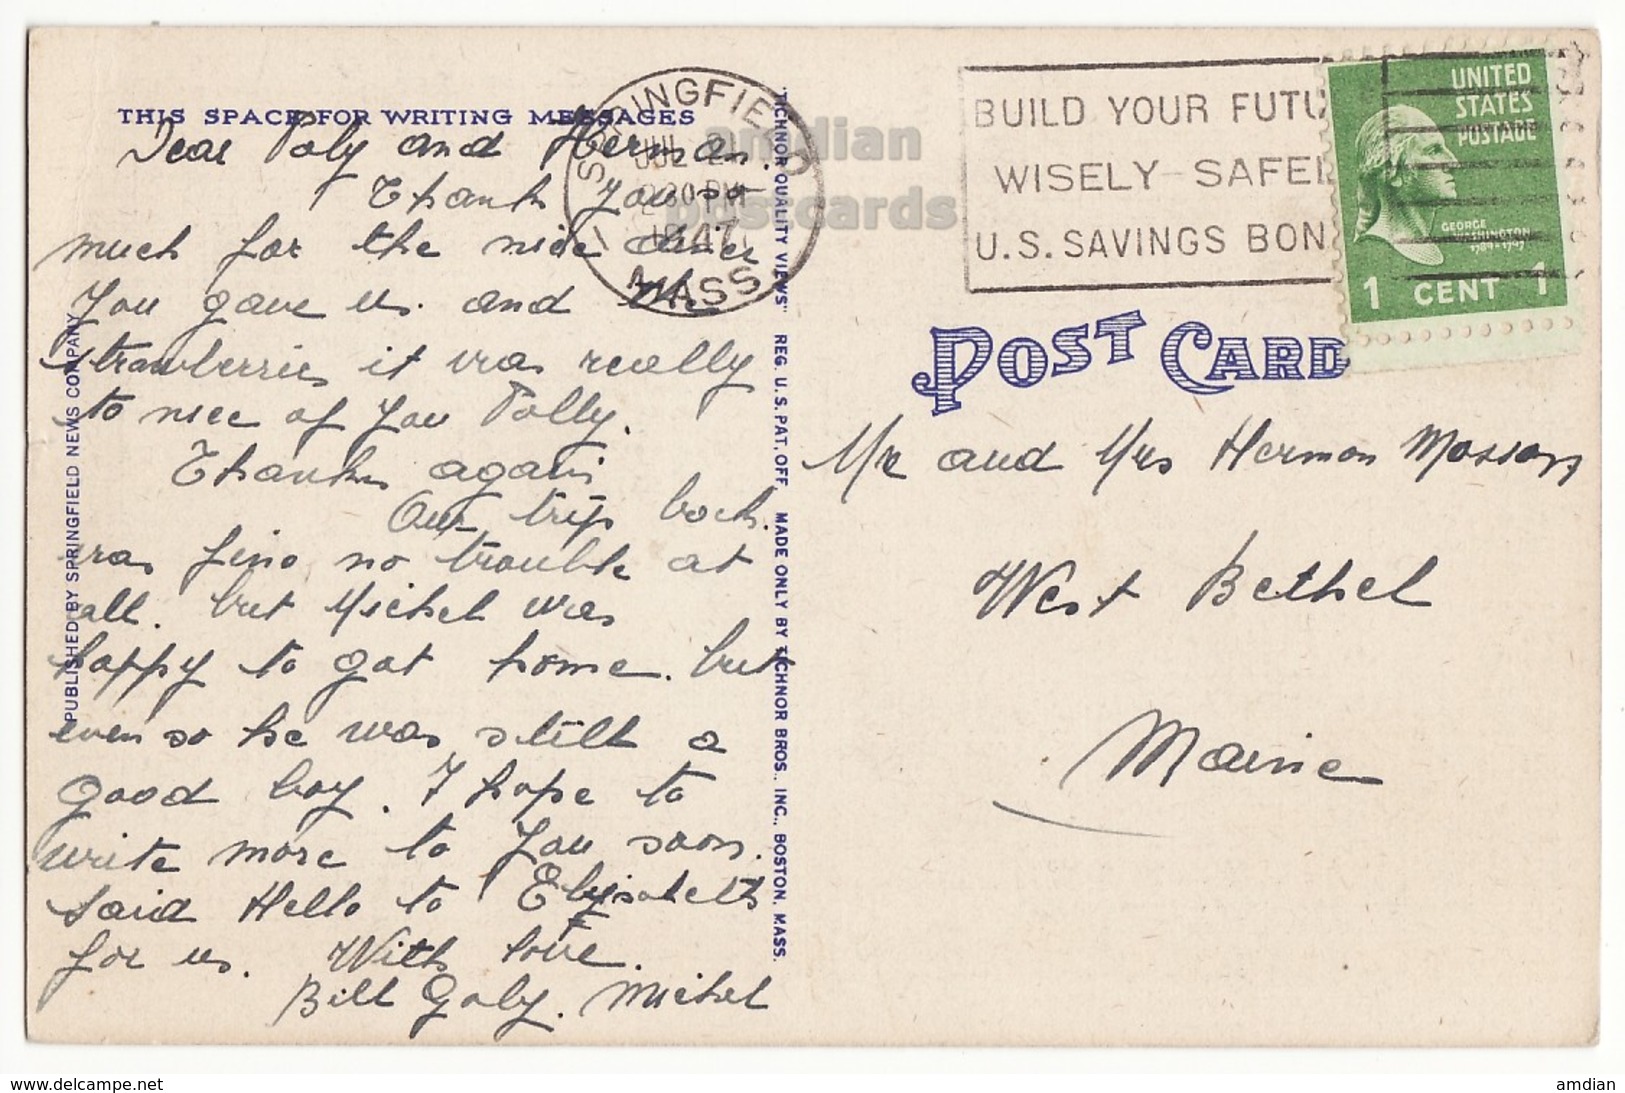 THIS SPACE FOR WRITING MESSAGES
Dear Poly and Herman.
Thank you so
much for the nice diner
You gave us. and the
strawberries it was really
to nice of you Polly.
Thanks again
Our trip back.
was fine no trouble at
all. but Michel was
happy to gat home. but
even so he was still a
good boy. I hope to
write more to you soon.
Said Hello to Elysabeth
for us. With love.
Bill Gaby. Michel
PUBLISHED BY SPRINGFIELD NEWS COMPANY
"TICHNOR QUALITY VIEWS" REG. U.S. PAT. OFF. MADE ONLY BY TICHNOR BROS., INC., BOSTON, MASS.
SPRINGFIELD
JUL 2
2 30 PM
1947
MASS.
BUILD YOUR FUTU
WISELY - SAFEL
U.S. SAVINGS BON
UNITED
STATES
POSTAGE
GEORGE
WASHINGTON
1789-1797
1 CENT 1
POST CARD
Mr and Mrs Hermon Masson
West Bethel
Maine
amdian
postcards
www.delcampe.net
amdian